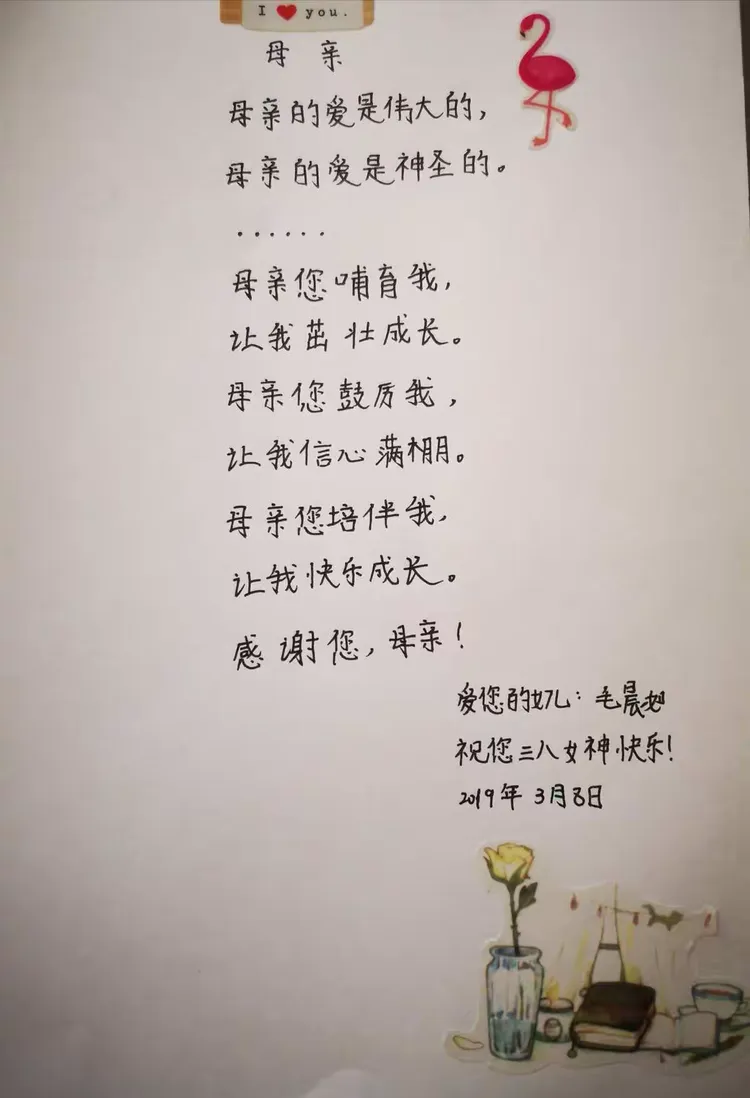 I ❤ you.
母亲
母亲的爱是伟大的，
母亲的爱是神圣的。
......
母亲您哺育我，
让我茁壮成长。
母亲您鼓厉我，
让我信心满棚。
母亲您培伴我，
让我快乐成长。
感谢您，母亲！
爱您的女儿：毛晨
祝您三八女神快乐！
2019年3月8日